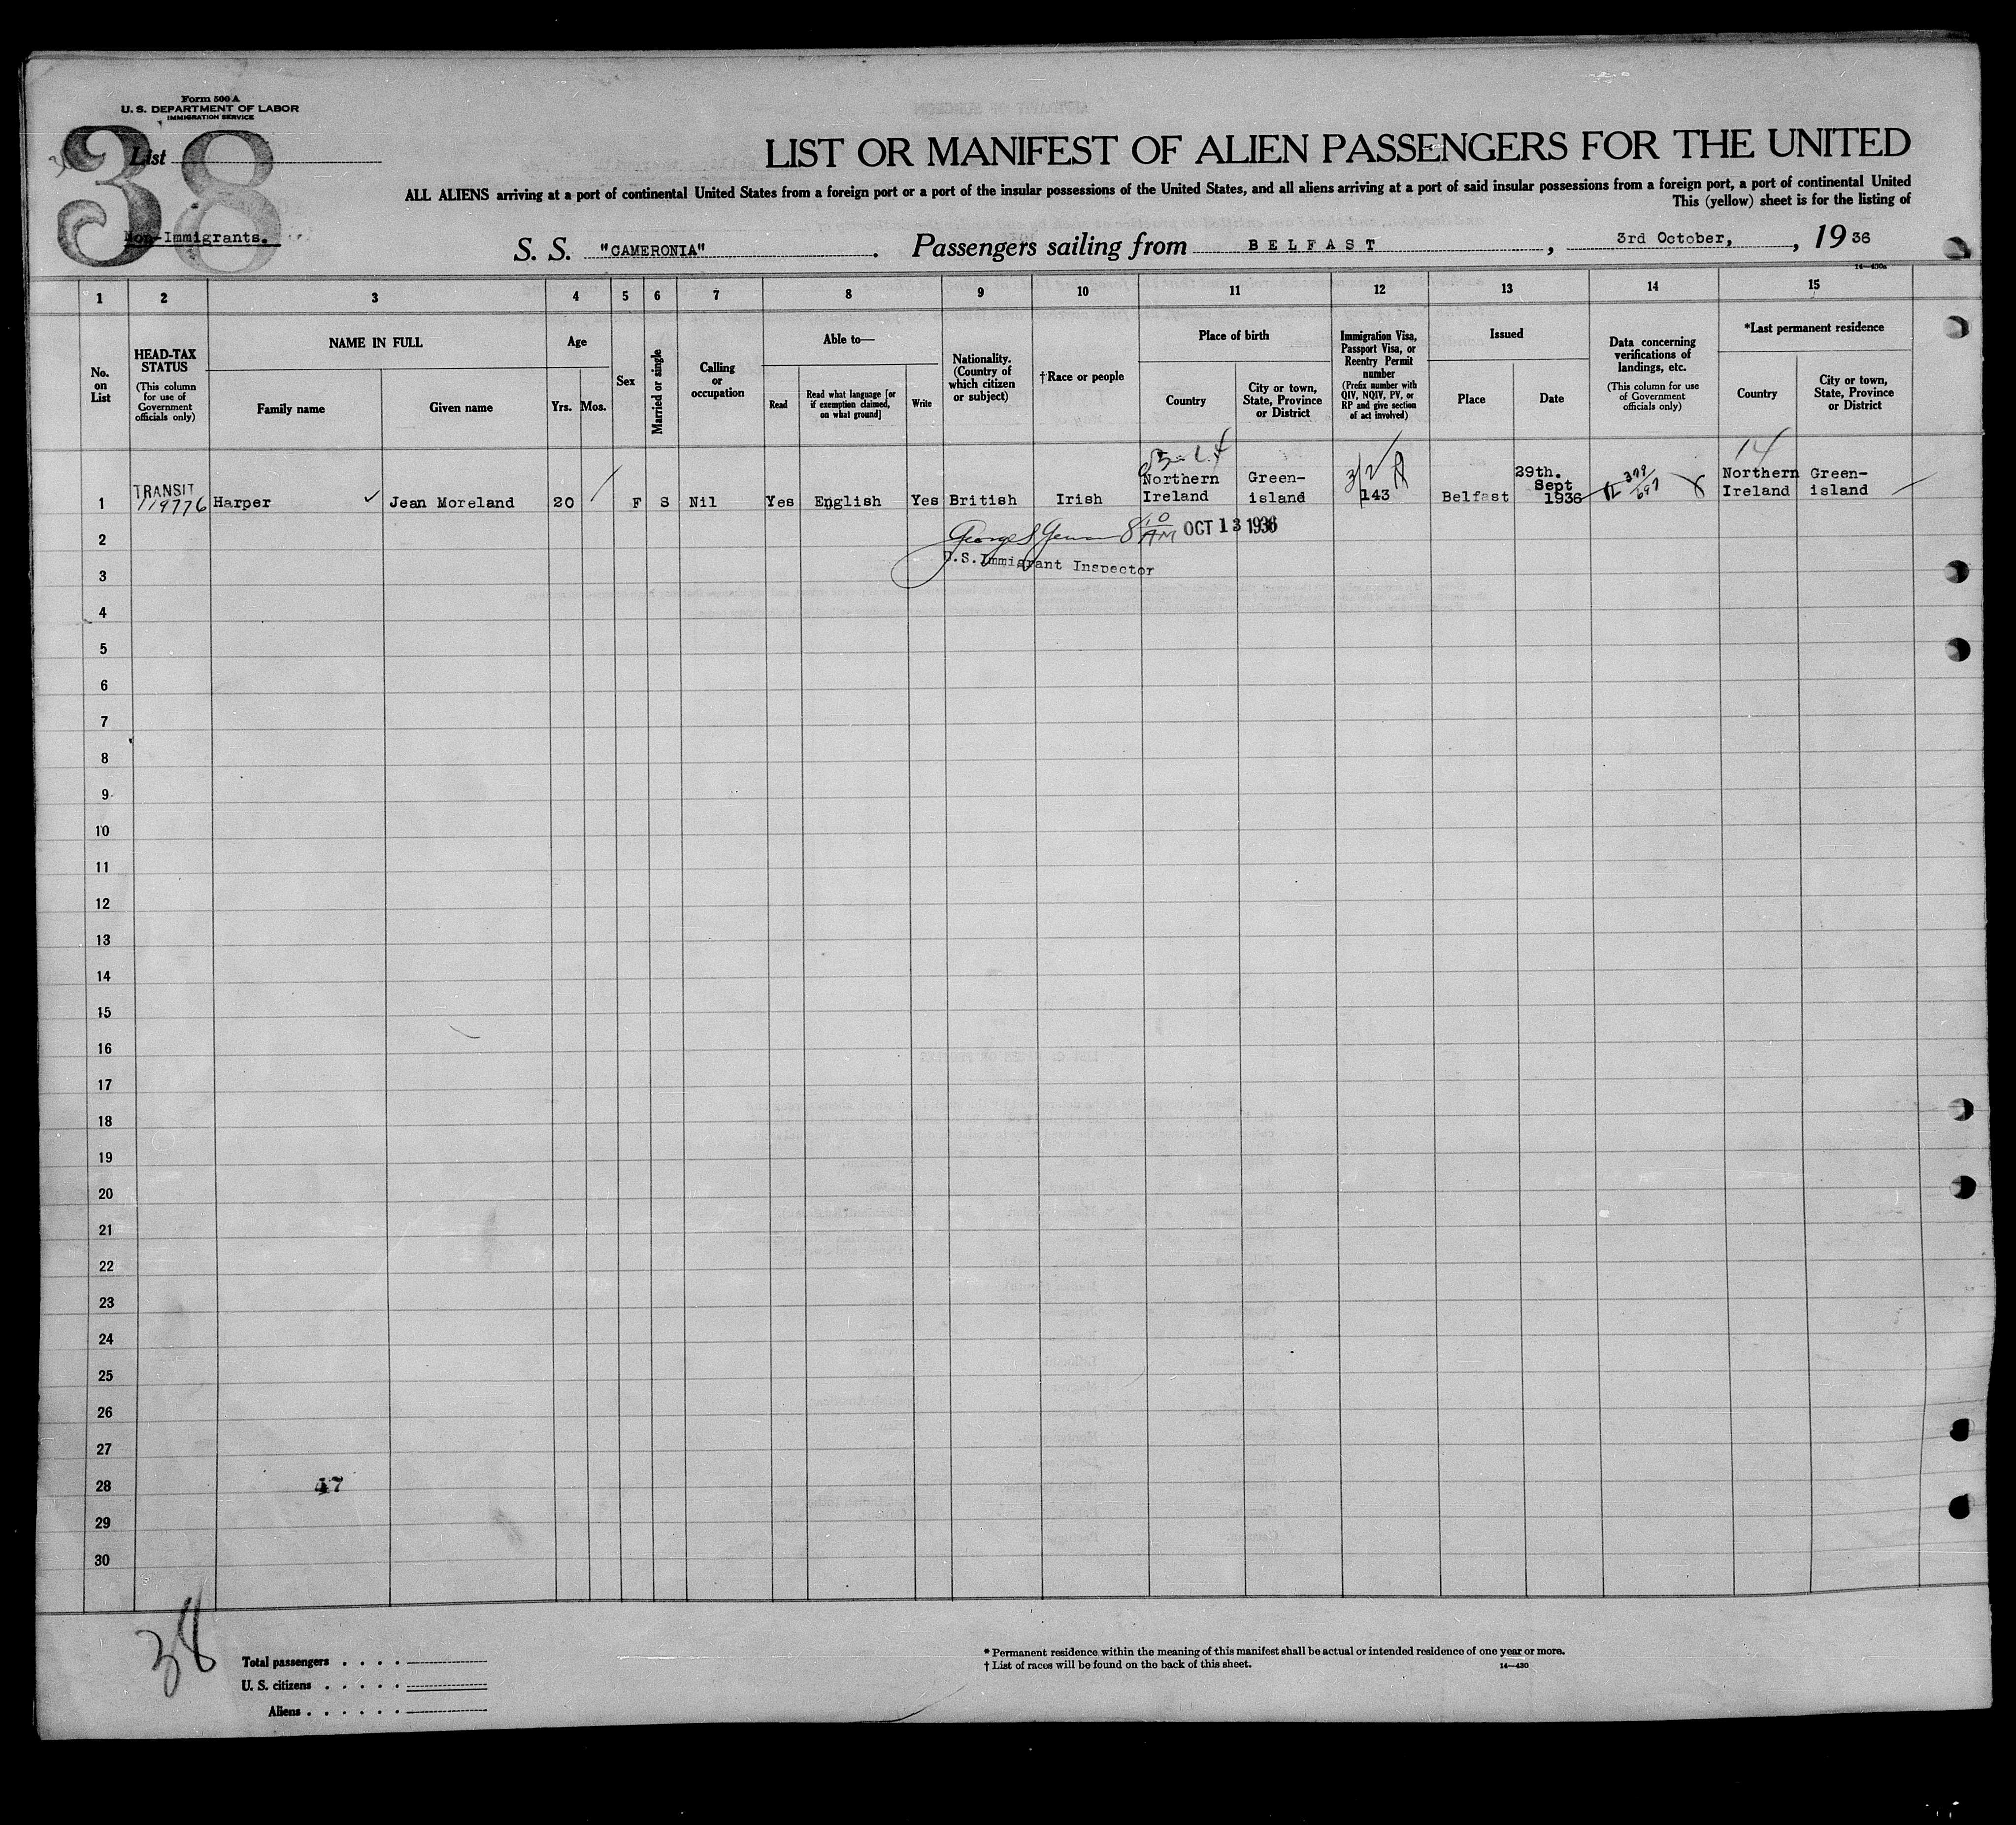 Form 500 A
U. S. DEPARTMENT OF LABOR
IMMIGRATION SERVICE
38
List
LIST OR MANIFEST OF ALIEN PASSENGERS FOR THE UNITED
ALL ALIENS arriving at a port of continental United States from a foreign port or a port of the insular possessions of the United States, and all aliens arriving at a port of said insular possessions from a foreign port, a port of continental United
This (yellow) sheet is for the listing of
Non-Immigrants.
S. S. "CAMERONIA". Passengers sailing from BELFAST, 3rd October, 1936
14—430a
1 2 3 4 5 6 7 8 9 10 11 12 13 14 15
No. on List
HEAD-TAX STATUS
(This column for use of Government officials only)
NAME IN FULL
Family name
Given name
Age
Yrs. Mos.
Sex
Married or single
Calling or occupation
Able to—
Read
Read what language [or if exemption claimed, on what ground]
Write
Nationality. (Country of which citizen or subject)
†Race or people
Place of birth
Country
City or town, State, Province or District
Immigration Visa, Passport Visa, or Reentry Permit number
(Prefix number with QIV, NQIV, PV, or RP and give section of act involved)
Issued
Place
Date
Data concerning verifications of landings, etc.
(This column for use of Government officials only)
*Last permanent residence
Country
City or town, State, Province or District
14
1 TRANSIT 119776 Harper Jean Moreland 20 F S Nil Yes English Yes British Irish Northern Ireland Green-island 3/2 143 Belfast 29th. Sept 1936 Northern Ireland Green-island
2
8 10 AM OCT 13 1936
U.S. Immigrant Inspector
3
4
5
6
7
8
9
10
11
12
13
14
15
16
17
18
19
20
21
22
23
24
25
26
27
28
47
29
30
38
Total passengers . . . .
U. S. citizens . . . . .
Aliens . . . . . .
* Permanent residence within the meaning of this manifest shall be actual or intended residence of one year or more.
† List of races will be found on the back of this sheet.
14—430